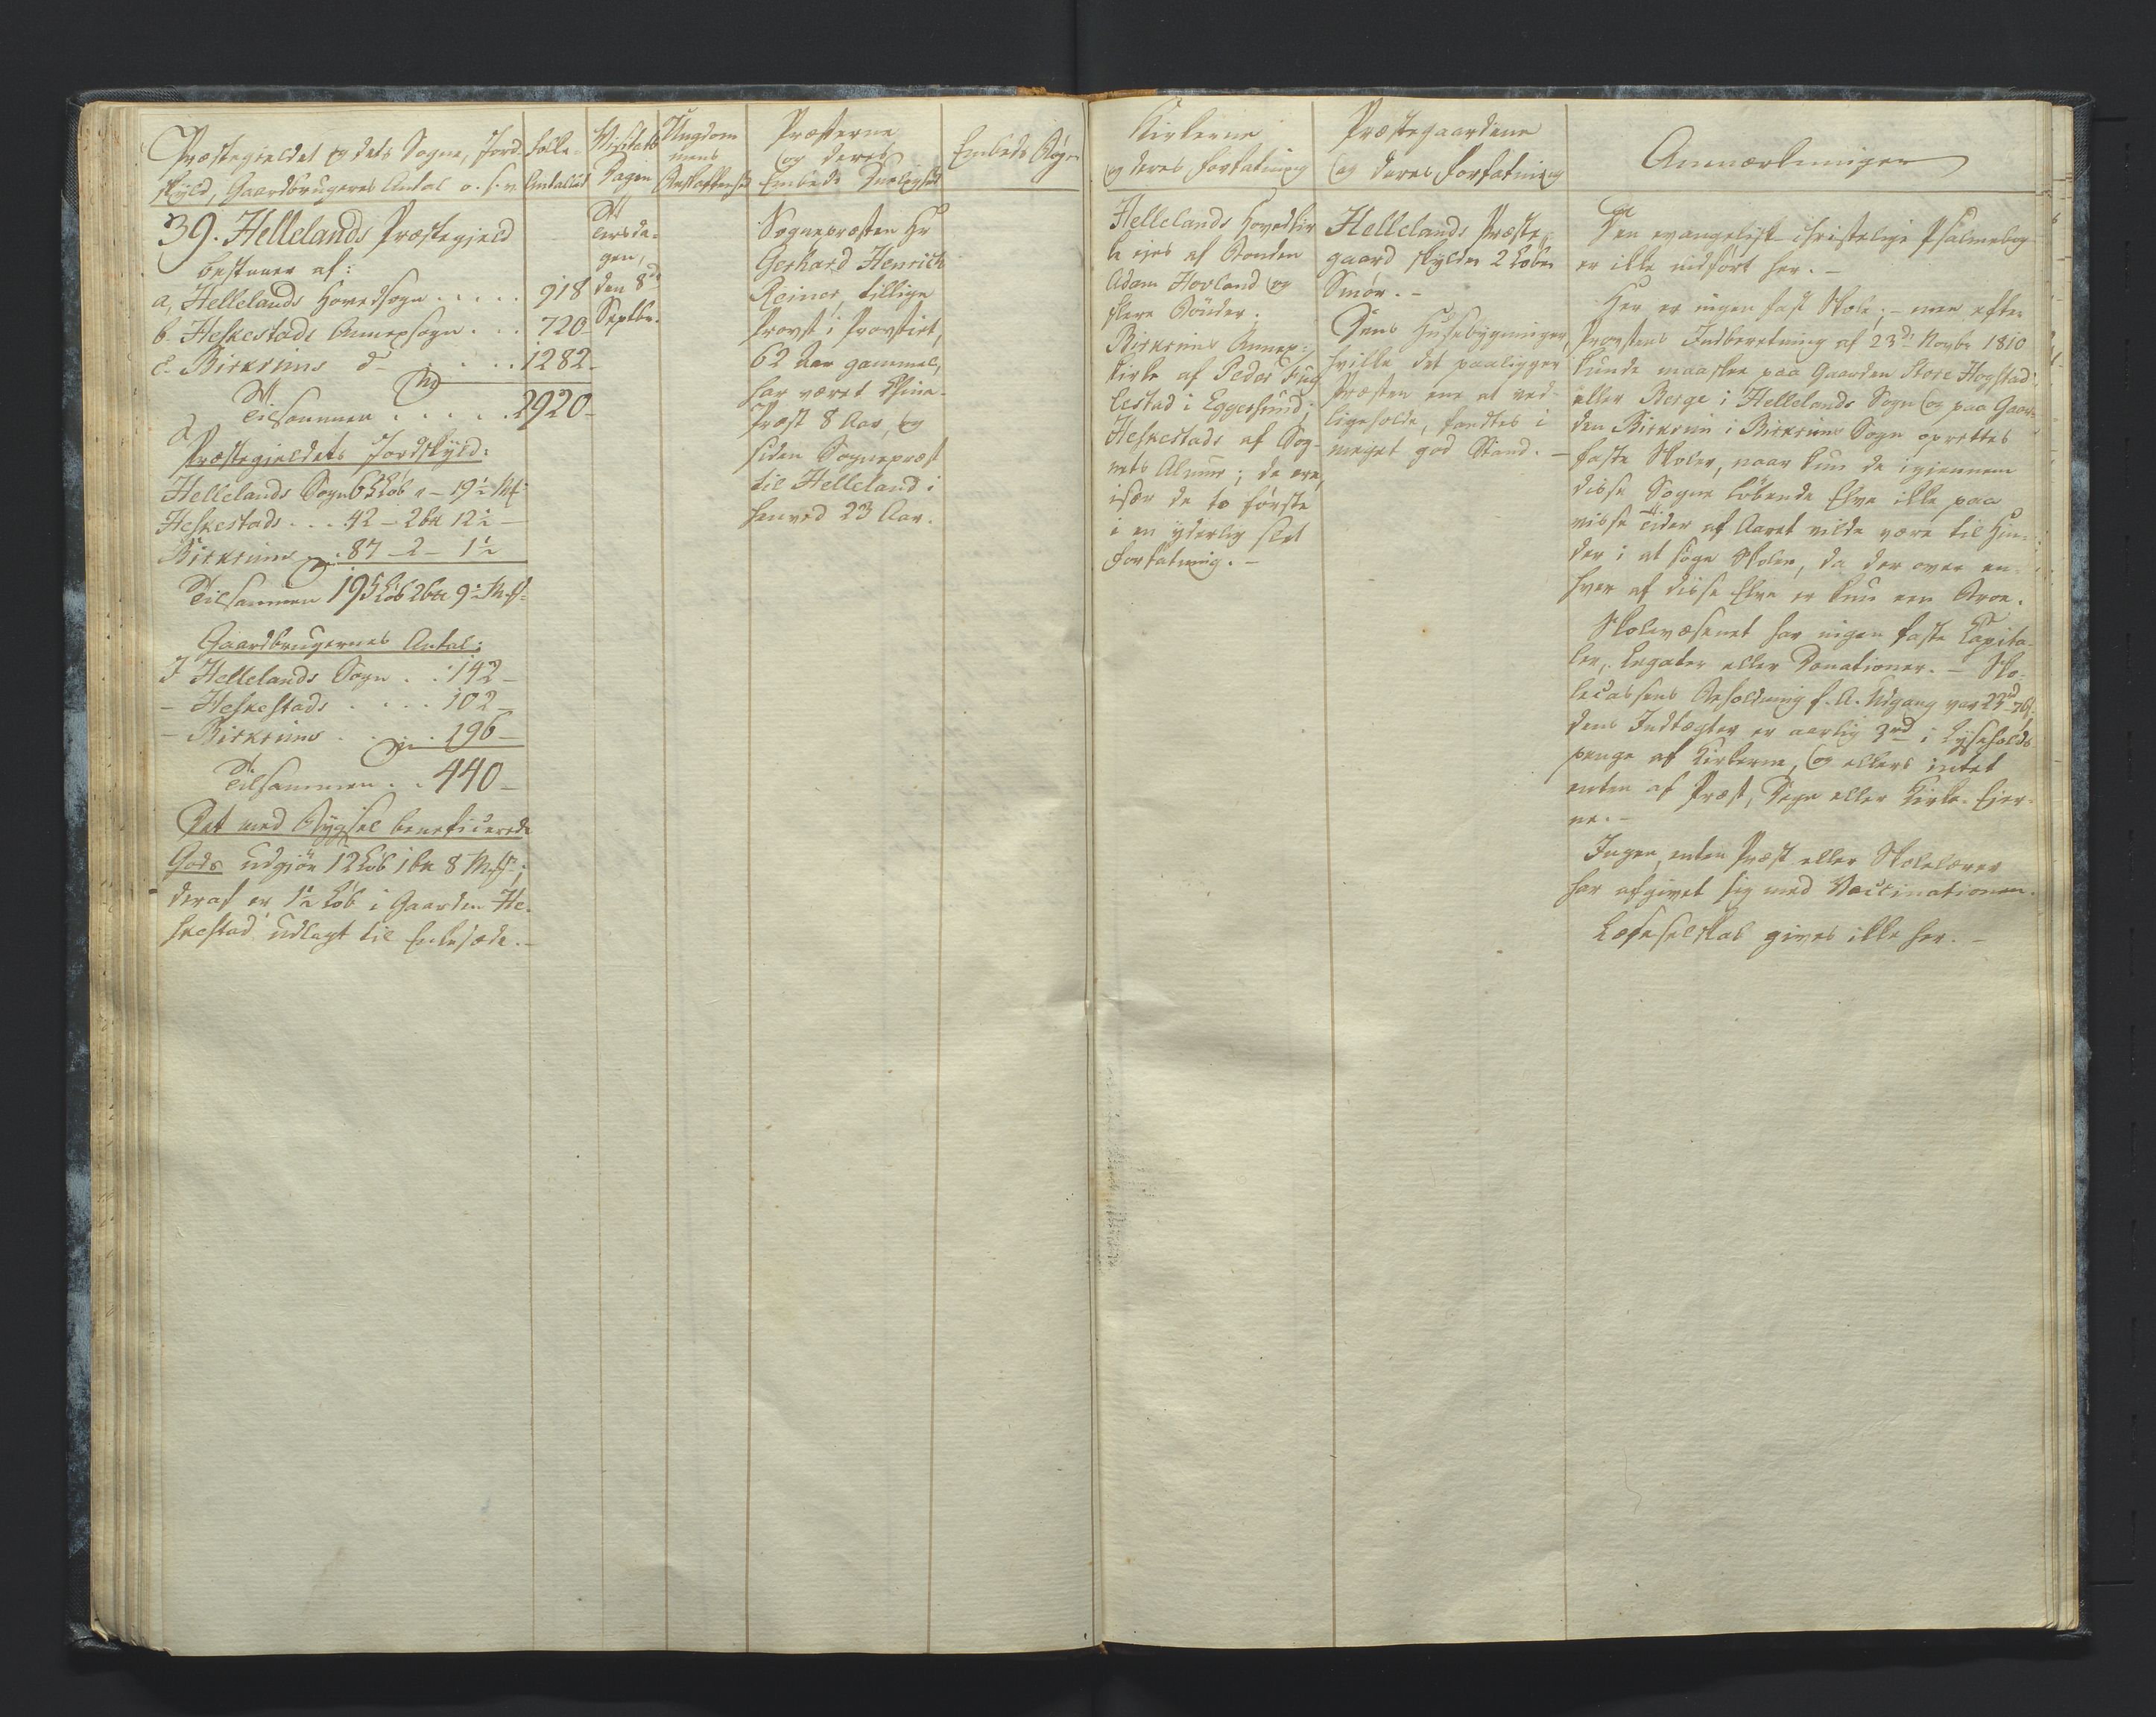 Præstegieldet og dets Sogne, Jord-
skyld, Gaardbrugeres Antal o. s. v.
Folke-
Antallet
Visitats
Dagen
Ungdom-
mens
Præsterne
og deres
Embeds Duelighed
Embeds Bøger
39. Hellelands Præstegjeld
bestaaer af:
a, Hellelands Hovedsogn . . . . . 918
b. Heskestads Annexsogn . . . 720
c. Birkrims do . . . . 1282
Tilsammen . . . . . 2920
Præstegjeldets Jordskyld:
Hellelands Sogn 65 Løb " - 19½ Mk
Heskestads . . . 42 - 2 bp 12½ -
Birkrims . 87 - 2 - 1½
Tilsammen 195 Løb 2 bp 9½ Mk
Gaardbrugernes Antal:
I Hellelands Sogn . . 142 -
- Heskestads . . . . 102 -
- Birkrims . . . . 196 -
Tilsammen . . 440 -
Det med Bygsel beneficerede
Gods udgjør 12 Løb 1 bp 8 Mk;
deraf er 1½ Løb i Gaarden He-
skestad udlagt til Enkesæde. -
Tirsda-
gen,
den 8de
Septbr.
Sognepræsten Hr
Gerhard Henrich
Reiner, tillige
Provst i Provstiet,
62 Aar gammel,
har været
Præst 8 Aar, og
siden Sognepræst
til Helleland i
henved 23 Aar.
Kirkerne
og deres Forfatning
Præstegaardene
og deres Forfatning
Anmærkninger
Hellelands Hovedkir-
ke ejes af Bonden
Adam Hovland og
flere Bønder.
Birkrims Annex-
kirke af Peder Fug-
lestad i Eggersund;
Heskestads af Sog-
nets Almue; de ere,
især de to første
i en yderlig slet
Forfatning. -
Hellelands Præste-
gaard skylder 2 Løber
Smør. -
Dens Huusebygninger,
hvilke det paaligger
Præsten ene at ved-
ligeholde, fandtes i
meget god Stand. -
Den evangelisk christelige Psalmebog
er ikke indført her. -
Her er ingen fast Skole; - men efter
Provstens Indberetning af 23de Novbr 1810
kunde maaskee paa Gaarden Store Hogstad
eller Berge i Hellelands Sogn og paa Gaar-
den Birkrim i Birkrims Sogn oprettes
faste Skoler, naar kun de igjennem
disse Sogne løbende Elve ikke paa
visse Tider af Aaret vilde være til Hin-
der i at søge Skolen, da der over en-
hver af disse Elve er kun een Broe.
Skolevæsenet har ingen faste Capita-
ler, Legater eller Donationer. - Sko-
lecassens Beholdning f. A. Udgang var 23 rd 76 s.
dens Indtægter er aarlig 3 rd i Lyseholds-
penge af Kirkerne, og ellers intet
enten af Præst, Degn eller Kirke-Eier-
ne. -
Ingen, enten Præst eller Skolelærer
har afgivet sig med Vaccinationen.
Læseselskab gives ikke her. -